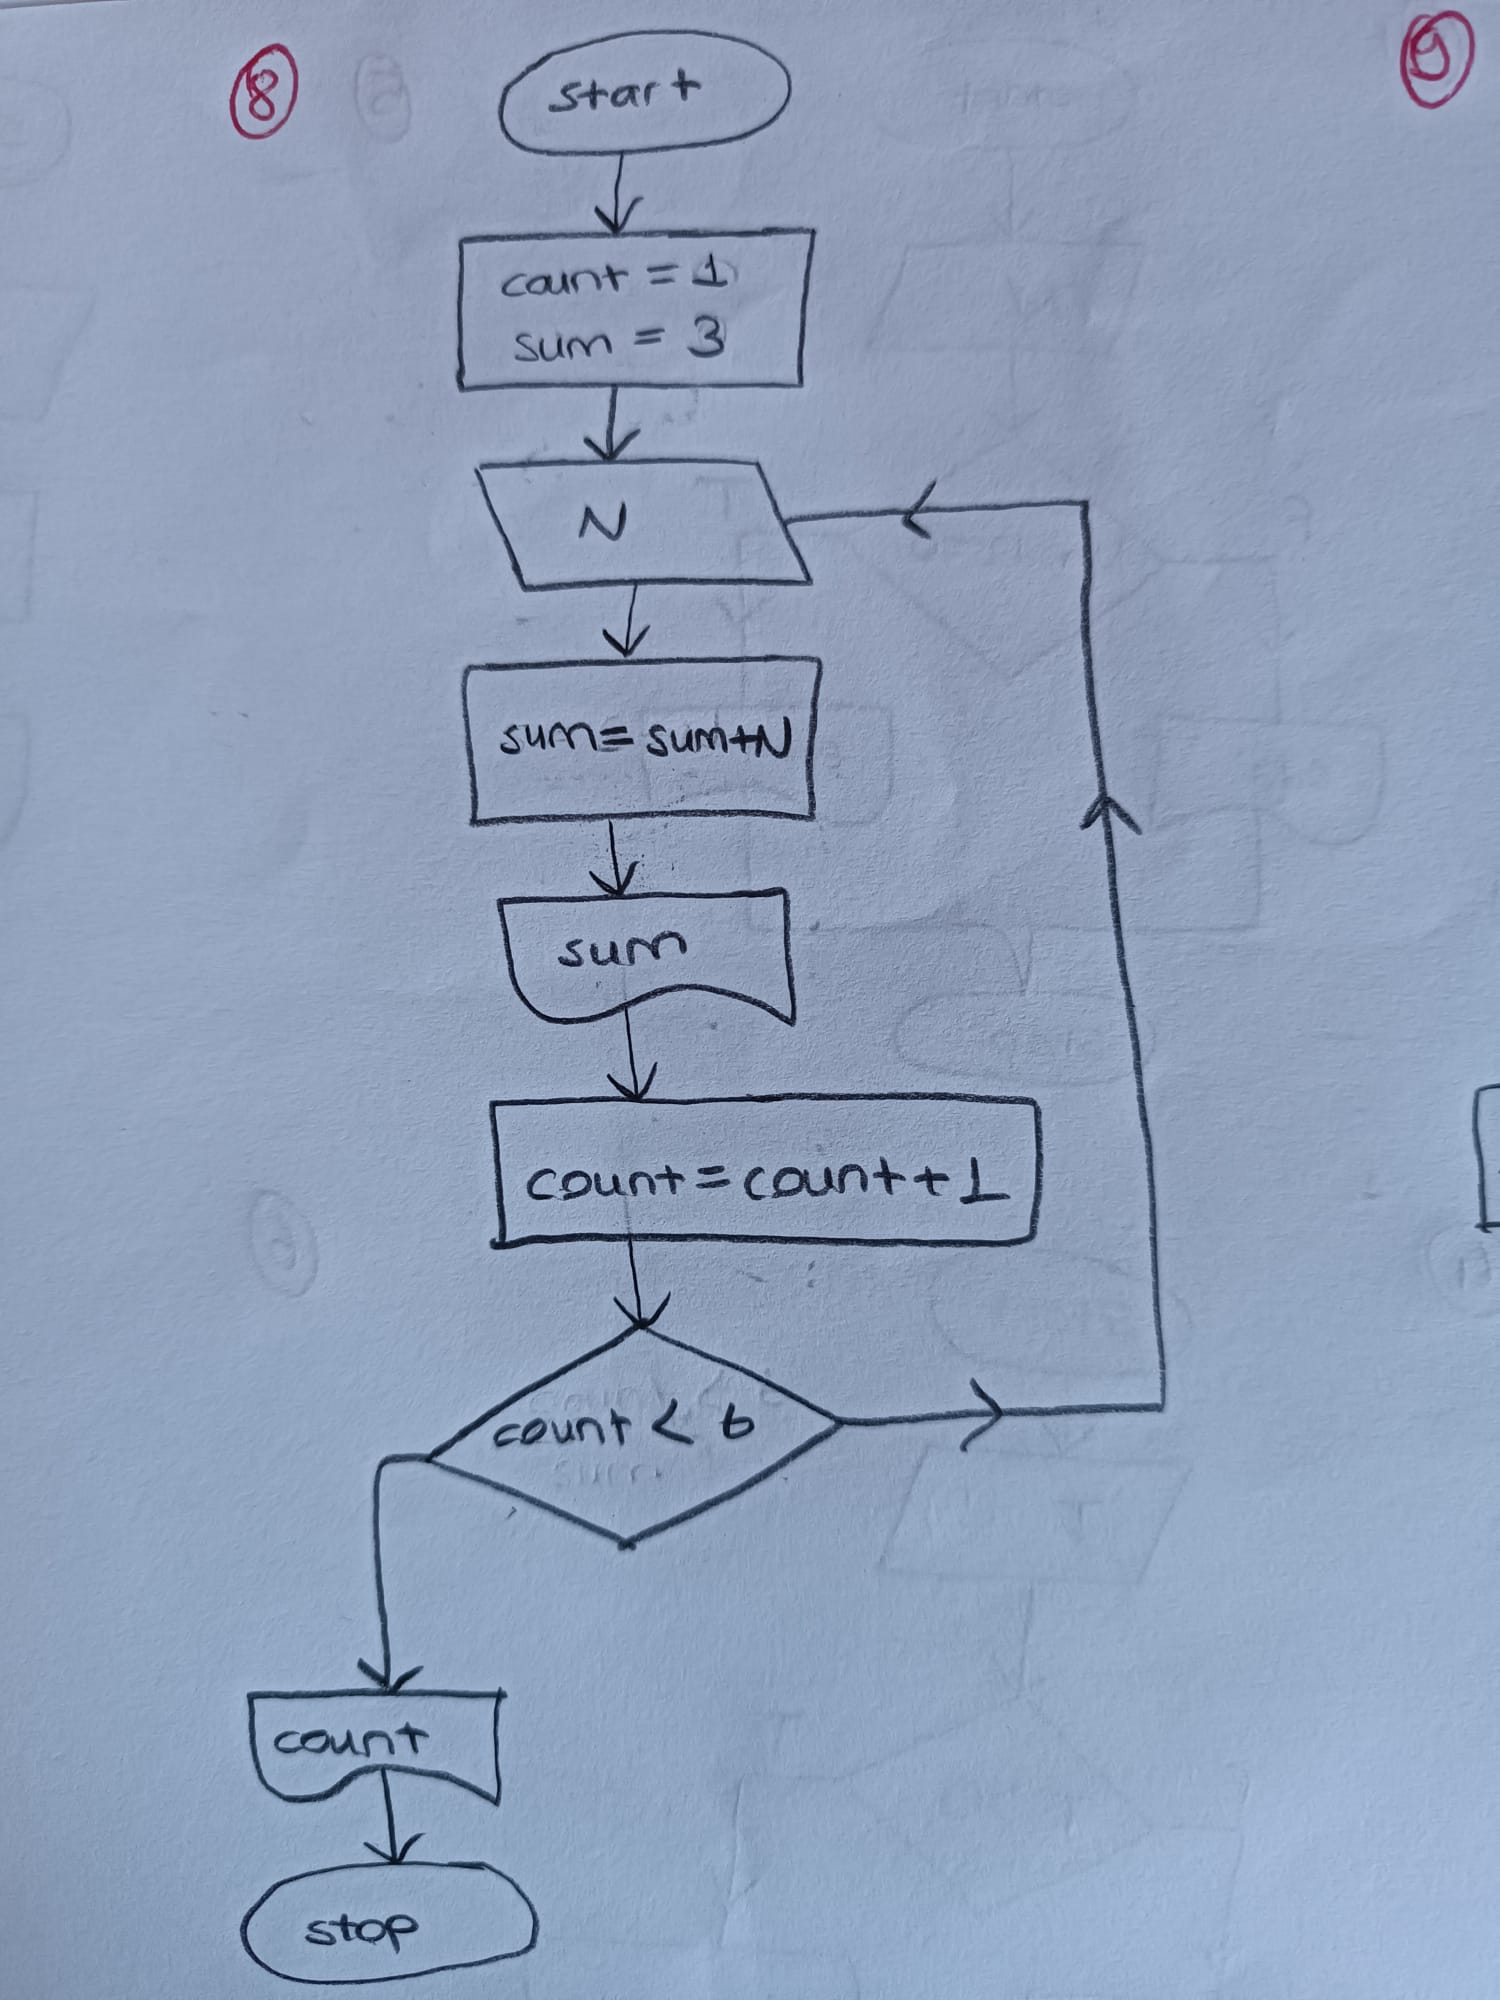 8
9
start
count = 1
sum = 3
N
sum = sum+N
sum
count = count + 1
count < 6
count
stop